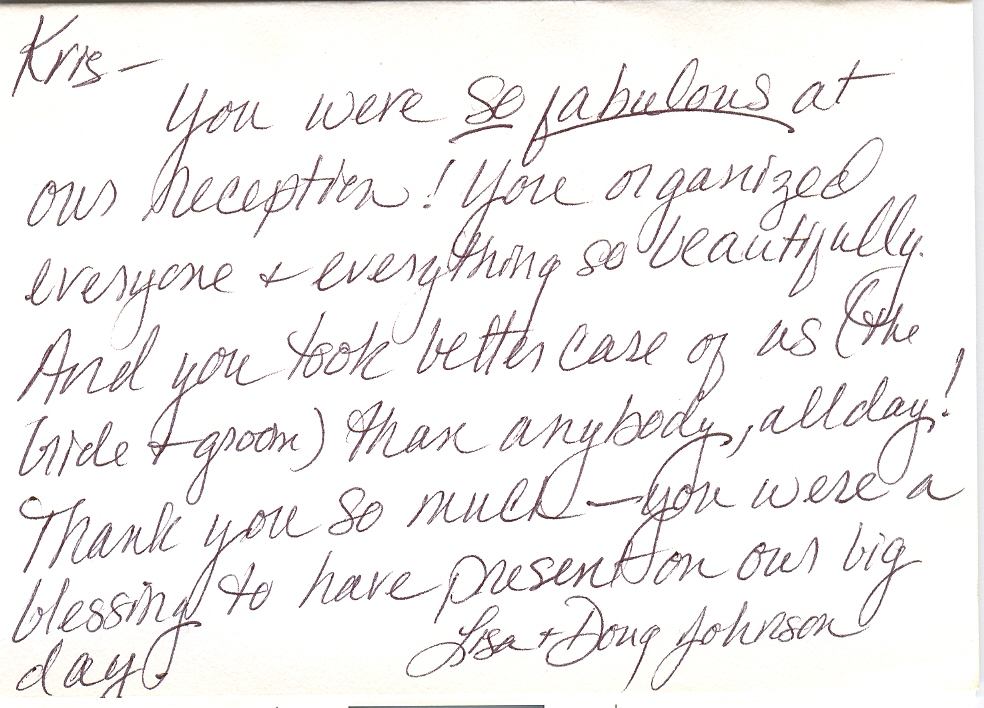 Kris –
You were so fabulous at
our reception! You organized
everyone + everything so beautifully.
And you took better care of us (the
bride + groom) than anybody, all day!
Thank you so much – you were a
blessing to have present on our big
day.
Lisa + Doug Johnson